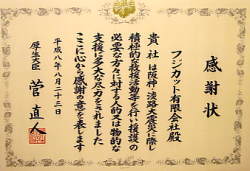 感謝状
フジカット有限会社殿
貴社は阪神・淡路大震災に際し
積極的な救援活動等を行い援護の
必要な方々に対する人的又は物的な
支援に多大な尽力をされました
ここに心から感謝の意を表します
平成八年八月二十三日
厚生大臣 菅直人